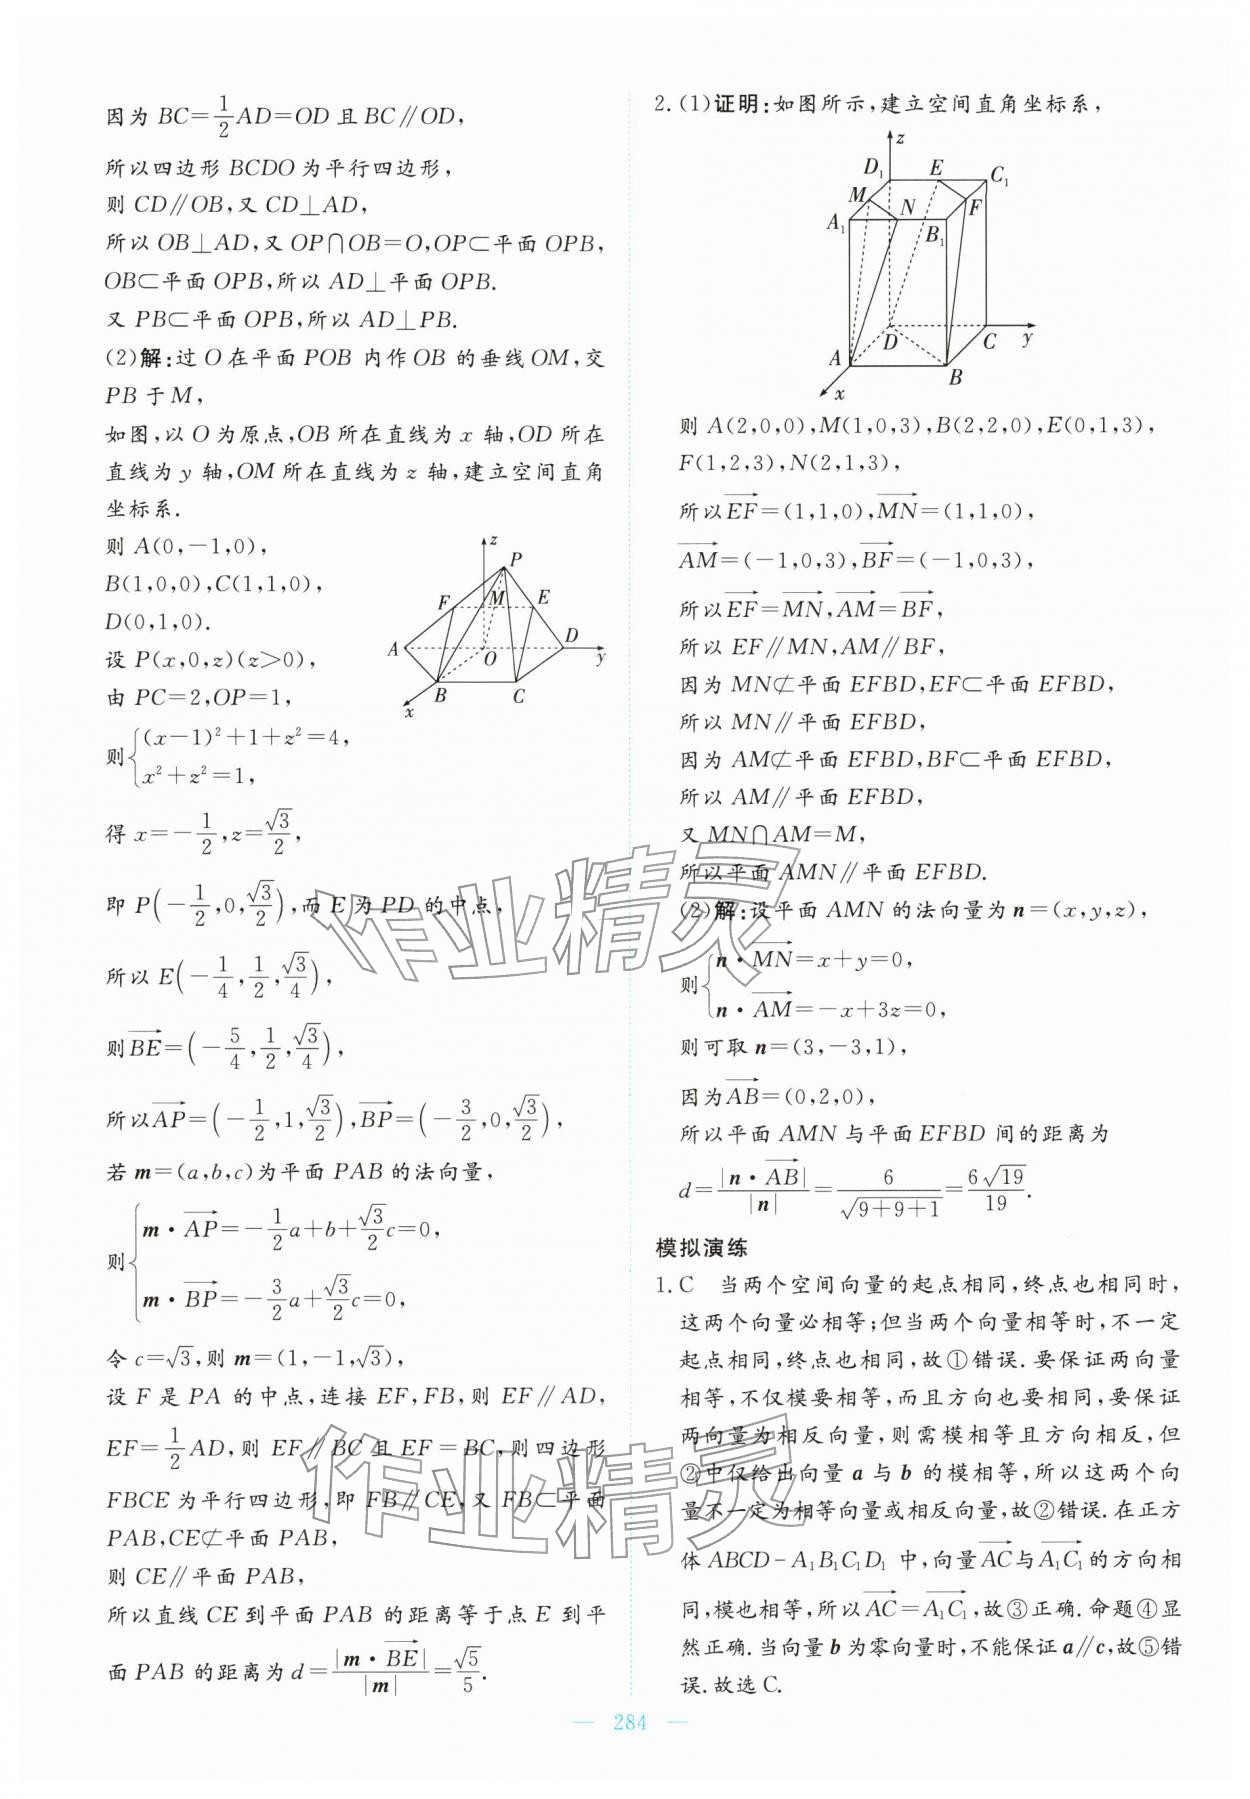 因为 BC=1/2AD=OD 且 BC∥OD,
所以四边形 BCDO 为平行四边形,
则 CD∥OB,又 CD⊥AD,
所以 OB⊥AD,又 OP∩OB=O,OP⊂平面 OPB,
OB⊂平面 OPB,所以 AD⊥平面 OPB.
又 PB⊂平面 OPB,所以 AD⊥PB.
(2)解:过 O 在平面 POB 内作 OB 的垂线 OM,交
PB 于 M,
如图,以 O 为原点,OB 所在直线为 x 轴,OD 所在
直线为 y 轴,OM 所在直线为 z 轴,建立空间直角
坐标系.
则 A(0,-1,0),
B(1,0,0),C(1,1,0),
D(0,1,0).
设 P(x,0,z)(z>0),
由 PC=2,OP=1,
则{(x-1)²+1+z²=4,
x²+z²=1,
z
P
F
M
E
A
O
D
y
B
C
x
得 x=-1/2,z=√3/2,
即 P(-1/2,0,√3/2),而 E 为 PD 的中点,
所以 E(-1/4,1/2,√3/4),
则BE→=(-5/4,1/2,√3/4),
所以AP→=(-1/2,1,√3/2),BP→=(-3/2,0,√3/2),
若 m=(a,b,c)为平面 PAB 的法向量,
则{m·AP→=-1/2a+b+√3/2c=0,
m·BP→=-3/2a+√3/2c=0,
令 c=√3,则 m=(1,-1,√3),
设 F 是 PA 的中点,连接 EF,FB,则 EF∥AD,
EF=1/2AD,则 EF∥BC 且 EF=BC,则四边形
FBCE 为平行四边形,即 FB∥CE,又 FB⊂平面
PAB,CE⊄平面 PAB,
则 CE∥平面 PAB,
所以直线 CE 到平面 PAB 的距离等于点 E 到平
面 PAB 的距离为 d=|m·BE→|/|m|=√5/5.
2.(1)证明:如图所示,建立空间直角坐标系,
z
D₁
E
C₁
M
N
F
A₁
B₁
D
C
y
A
B
x
则 A(2,0,0),M(1,0,3),B(2,2,0),E(0,1,3),
F(1,2,3),N(2,1,3),
所以EF→=(1,1,0),MN→=(1,1,0),
AM→=(-1,0,3),BF→=(-1,0,3),
所以EF→=MN→,AM→=BF→,
所以 EF∥MN,AM∥BF,
因为 MN⊄平面 EFBD,EF⊂平面 EFBD,
所以 MN∥平面 EFBD,
因为 AM⊄平面 EFBD,BF⊂平面 EFBD,
所以 AM∥平面 EFBD,
又 MN∩AM=M,
所以平面 AMN∥平面 EFBD.
(2)解:设平面 AMN 的法向量为 n=(x,y,z),
则{n·MN→=x+y=0,
n·AM→=-x+3z=0,
则可取 n=(3,-3,1),
因为AB→=(0,2,0),
所以平面 AMN 与平面 EFBD 间的距离为
d=|n·AB→|/|n|=6/√(9+9+1)=6√19/19.
模拟演练
1.C 当两个空间向量的起点相同,终点也相同时,
这两个向量必相等;但当两个向量相等时,不一定
起点相同,终点也相同,故①错误.要保证两向量
相等,不仅模要相等,而且方向也要相同,要保证
两向量为相反向量,则需模相等且方向相反,但
②中仅给出向量 a 与 b 的模相等,所以这两个向
量不一定为相等向量或相反向量,故②错误.在正方
体 ABCD-A₁B₁C₁D₁ 中,向量AC→与A₁C₁→的方向相
同,模也相等,所以AC→=A₁C₁→,故③正确.命题④显
然正确.当向量 b 为零向量时,不能保证 a∥c,故⑤错
误.故选 C.
作业精灵
作业精灵
— 284 —